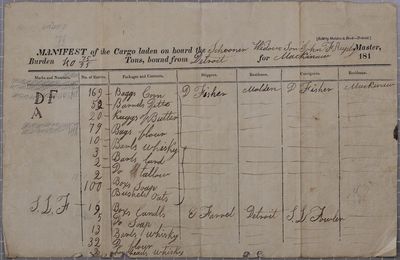 MANIFEST of the Cargo laden on board the Schooner Widows Son John F. Master,
Burden 40 Tons, bound from Detroit for Mackinaw 181
Marks and Numbers. No. of Entries. Packages and Contents. Shippers. Residence. Consignees. Residence.
DF 169 Baggs Corn D Fisher Malden D Fisher Mackinaw
A 52 Barrels Ditto
20 Kuggs Butter
79 Bags flour
10 Barels Whisky
3 Barels Lard
2 Do Tallow
2 Boxes Soap
100 Bushels Oats
S.L.F 19 Boxs Candls E Farnel Detroit S L Fowler
5 Do Soap
13 Barels Whisky
32 Do flour
Whisky